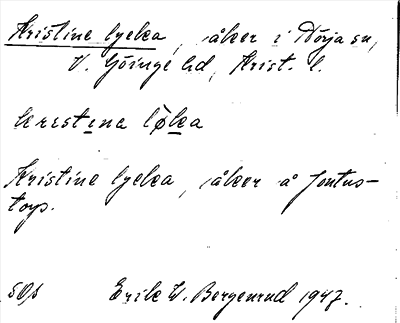 Kristine lycka, åker i Nörja sn,
V. Göinge hd, Krist. l.
krestina løka
Kristine lycka, åker å Jontus-
torp.
Erik W. Bergenrud 1947.